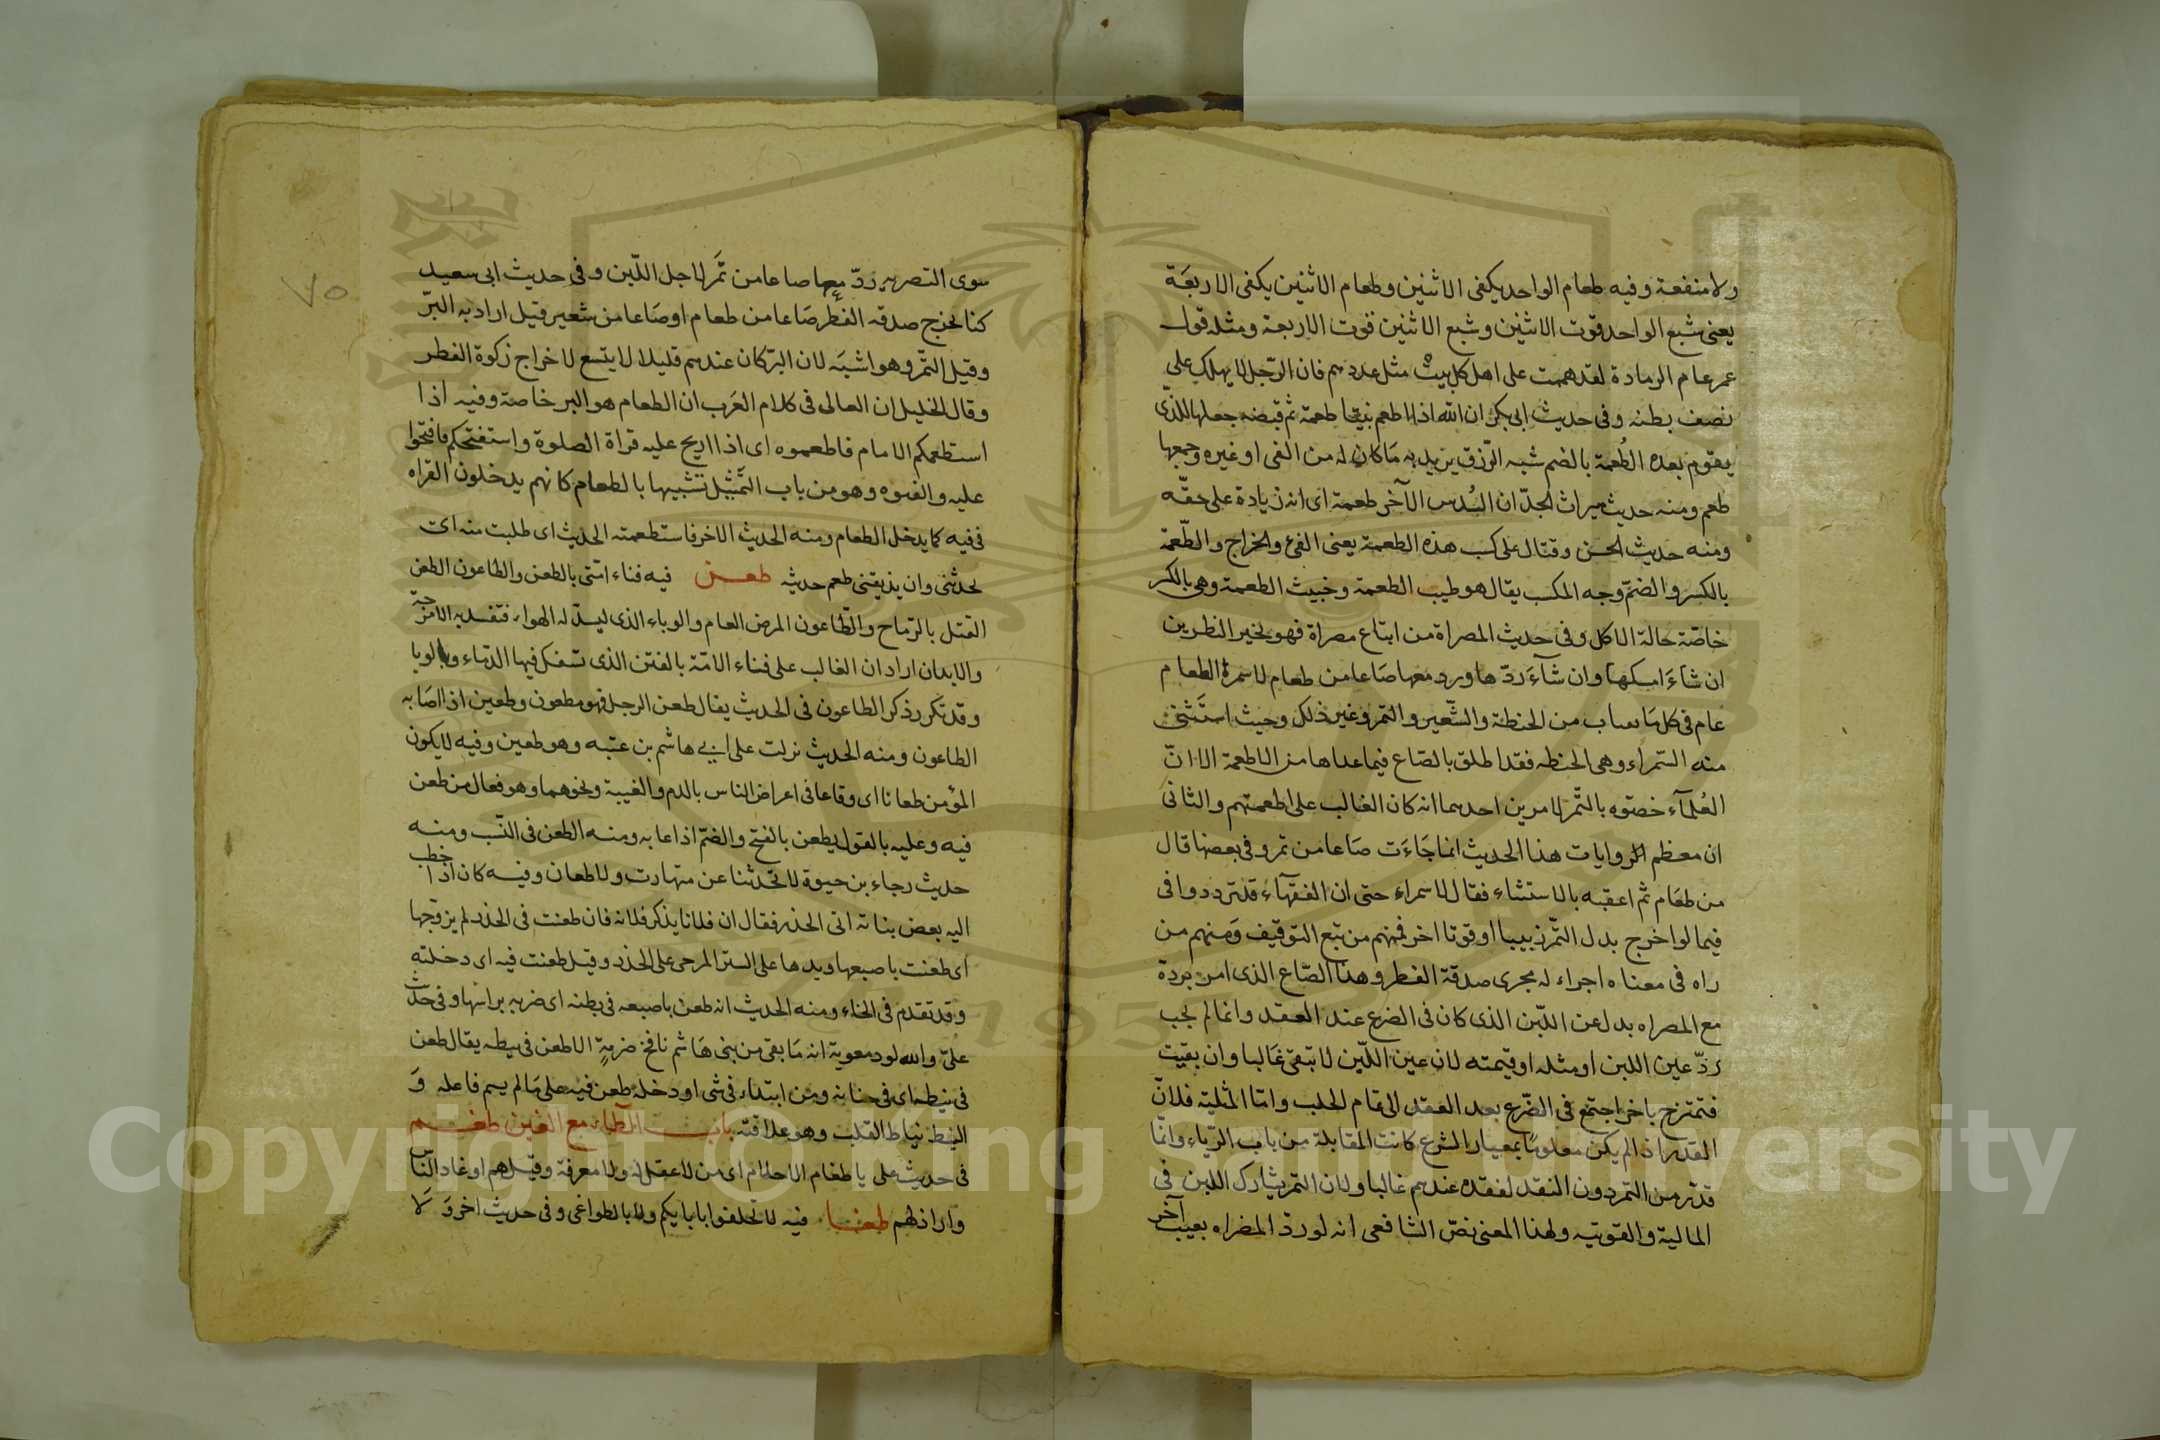 ولا منفعة وفيه طعام الواحد يكفى الاثنين وطعام الاثنين يكفى الاربعَة
يعنى شبع الواحد قوت الاثنين وشبع الاثنين قوت الاربعة ومثله قول
عمر عام الرمادة لقد هممت على اهل كل بيت مثل عددهم فان الرّجل لا يهلك على
نصف بطنه وفى حديث ابى بكر ان الله اذا اطعم نبيّا طعمة ثم قبضه جعلها للذى
يقوم بعده الطُعمة بالضم شبه الرّزق يريد به مَا كان له من الفى او غيره وجمعها
طعم ومنه حديث ميراث الجدّ ان السُدس الآخر طعمة اى انه زيادة على حقّه
ومنه حديث الحسن وقتال على كسب هذه الطعمة يعنى الفئ والخراج والطّعمة
بالكسر والضمّ وجه المكسب يقال هو طيب الطعمة وخبيث الطعمة وهى بالكسر
خاصّة حالة الاكل وفى حديث المصراة من ابتاع مصراة فهو بخير النظرين
ان شاءَ امسكها وان شآءَ ردّها ورد معها صَاعا من طعام لا سمراء الطعام
عام فى كل مَا يقتات من الحنطة والشّعير والتمر وغير ذلك وحيث استَثنى
منه السّمراء وهى الحنطه فقد اطلق بالصّاع فيما عداها من الاطعمة الا انّ
العُلمآء خصّوه بالتّمر لامرين احدهما انه كان الغالب على اطعمتهم والثانى
ان معظم الروايات هذا الحديث انما جَاءَت صَاعا من تمر وفى بعضها قال
من طعَام ثم اعقبه بالاستثناء فقال لا سمراء حتى ان الفقهآء قد ترددوا فى
فيما لو اخرج بدل التّمر زبيبا او قوتا اخر فمنهم من تبع التوقيف وَمنهم من
راه فى معناه اجراء له مجرى صدقة الفطر وهذا الصّاع الذى امر بردة
مع المصراه بدل عن اللّبن الذى كان فى الضرع عند العقد وانما لم يجب
ردّ عين اللبن او مثله او قيمته لان عين اللّبن لا تبقى غَالبا وان بقيت
فتمتزج باخر اجتمع فى الضّرع بعد العقد الى تمام الحلب وامّا المثليّه فلانّ
القدر اذا لم يكن معلومًا بمعيار الشرع كانت المقابلة من باب الرّباء وانّما
قدّر من التمر دون النقد لفقده عندهم غالبا ولان التمر يشارك اللبن فى
المالية والقوتيه ولهذا المعنى نصّ الشافعى انه لو ردّ المصراه بعيب آخر
٧٥
سوى التصريه ردّ معها صاعا من تمَر لاجل اللّبن وفى حديث ابى سعيد
كنا نخرج صدقه الفطر صَاعا من طعام او صَاعا من شعير قيل اراد به البرّ
وقيل التّمر وهو اشبَه لان البرّ كان عندهم قليلا لا يتسع لاخراج زكوة الفطر
وقال الخليل ان العالى فى كلام العَرب ان الطعام هو البر خاصة وفيه اذا
استطعمكم الامام فاطعموه اى اذا ارتج عليه قراة الصلوة واستفتحكم فافتحوا
عليه والقنوه وهو من باب التّمثيل تشبيها بالطعام كانهم يدخلون القراه
فى فيه كما يدخل الطعام ومنه الحديث الاخر فاستطعمته الحديث اى طلبت منه ان
يحدثنى وان يذيقنى طعم حديثه طعـــن فيه فناء امّتى بالطعن والطاعون الطعن
القتل بالرّماح والطّاعون المرض العام والوباء الذى يفسد له الهواء فتفسد به الامزجة
والابدان اراد ان الغالب على فناء الامّة بالفتن الذى تسفك فيها الدّماء وبالوبا
وقد تكرر ذكر الطاعون فى الحديث يقال طعن الرجل فهو مطعون وطعين اذا اصَابه
الطاعون ومنه الحديث نزلت على ابى هاشم بن عتبه وهو طعين وفيه لا يكون
المؤمن طعانا اى وقاعا فى اعراض الناس بالذم والغيبة ونحوهما وهو فعال من طعن
فيه وعليه بالقول يطعن بالفتح والضمّ اذا عابه ومنه الطعن فى النّسب ومنه
حديث رجاء بن حيوة لا تحدّثنا عن متهارت ولا طعان وفيه كان اذا خطب
اليه بعض بناته اتى الخدر فقال ان فلانا يذكر فلانه فان طعنت فى الخدر لم يزوّجها
اى طعنت باصبعها ويدها على الستر المرخى على الخدر وقيل طعنت فيه اى دخلته
وقد تقدم فى الخاء ومنه الحديث انه طعن باصبعه فى بطنه اى ضربه براسها وفى حديث
علىّ والله لود معوية انه مَا بقى من بنى هَاشم نافخ ضرمةٍ الا طعن فى نيطه يقال طعن
فى نيطه اى فى جنازته ومن ابتداء فى شى او دخله طعن فيه على مَا لم يسم فاعله وَ
النيط نياط القلب وهو علاقته بابـــ الطاء مع الغين طغـــم
فى حديث على يا طغام الاحلام اى من لا عقل له ولا معرفة وقيل هم اوغاد النّاس
واراذلهم طغـــا فيه لا تحلفوا بابايكم ولا بالطواغى وفى حديث اخر وَلَا
Copyright © King Saud University